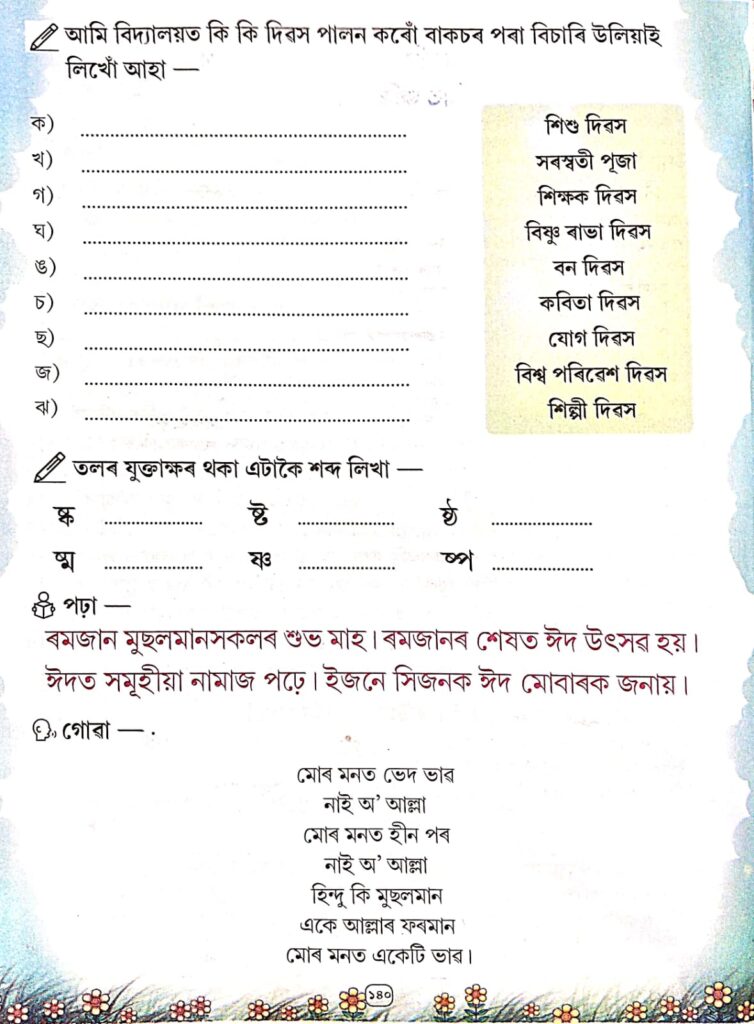 আমি বিদ্যালয়ত কি কি দিৱস পালন কৰোঁ বাকচৰ পৰা বিচাৰি উলিয়াই
লিখোঁ আহা —
ক) ........................................
খ) ........................................
গ) ........................................
ঘ) ........................................
ঙ) ........................................
চ) ........................................
ছ) ........................................
জ) ........................................
ঝ) ........................................
শিশু দিৱস
সৰস্বতী পূজা
শিক্ষক দিৱস
বিষ্ণু ৰাভা দিৱস
বন দিৱস
কবিতা দিৱস
যোগ দিৱস
বিশ্ব পৰিৱেশ দিৱস
শিল্পী দিৱস
তলৰ যুক্তাক্ষৰ থকা এটাকৈ শব্দ লিখা —
ষ্ক .................. ষ্ট .................. ষ্ঠ ..................
ষ্ম .................. ষ্ণ .................. ষ্প ..................
পঢ়া —
ৰমজান মুছলমানসকলৰ শুভ মাহ। ৰমজানৰ শেষত ঈদ উৎসৱ হয়।
ঈদত সমূহীয়া নামাজ পঢ়ে। ইজনে সিজনক ঈদ মোবাৰক জনায়।
গোৱা —
মোৰ মনত ভেদ ভাৱ
নাই অ’ আল্লা
মোৰ মনত হীন পৰ
নাই অ’ আল্লা
হিন্দু কি মুছলমান
একে আল্লাৰ ফৰমান
মোৰ মনত একেটি ভাৱ।
১৪০